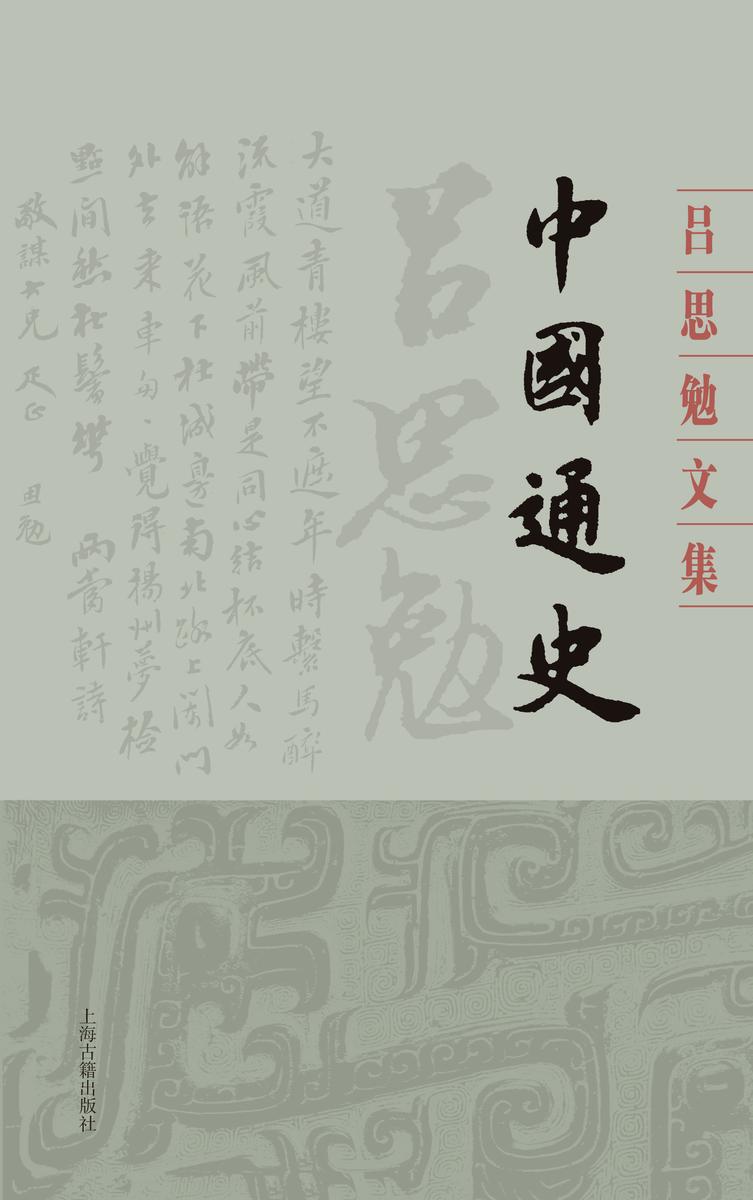 吕思勉文集
中國通史
吕思勉
大道青樓望不遮年時繫馬醉
流霞風前帶是同心結杯底人如
解語花下杜城邊南北路上闌門
外去來車匆匆覺得揚州夢檢
點閒愁在鬢華 兩當軒詩
敬謀 兄 正 思勉
上海古籍出版社